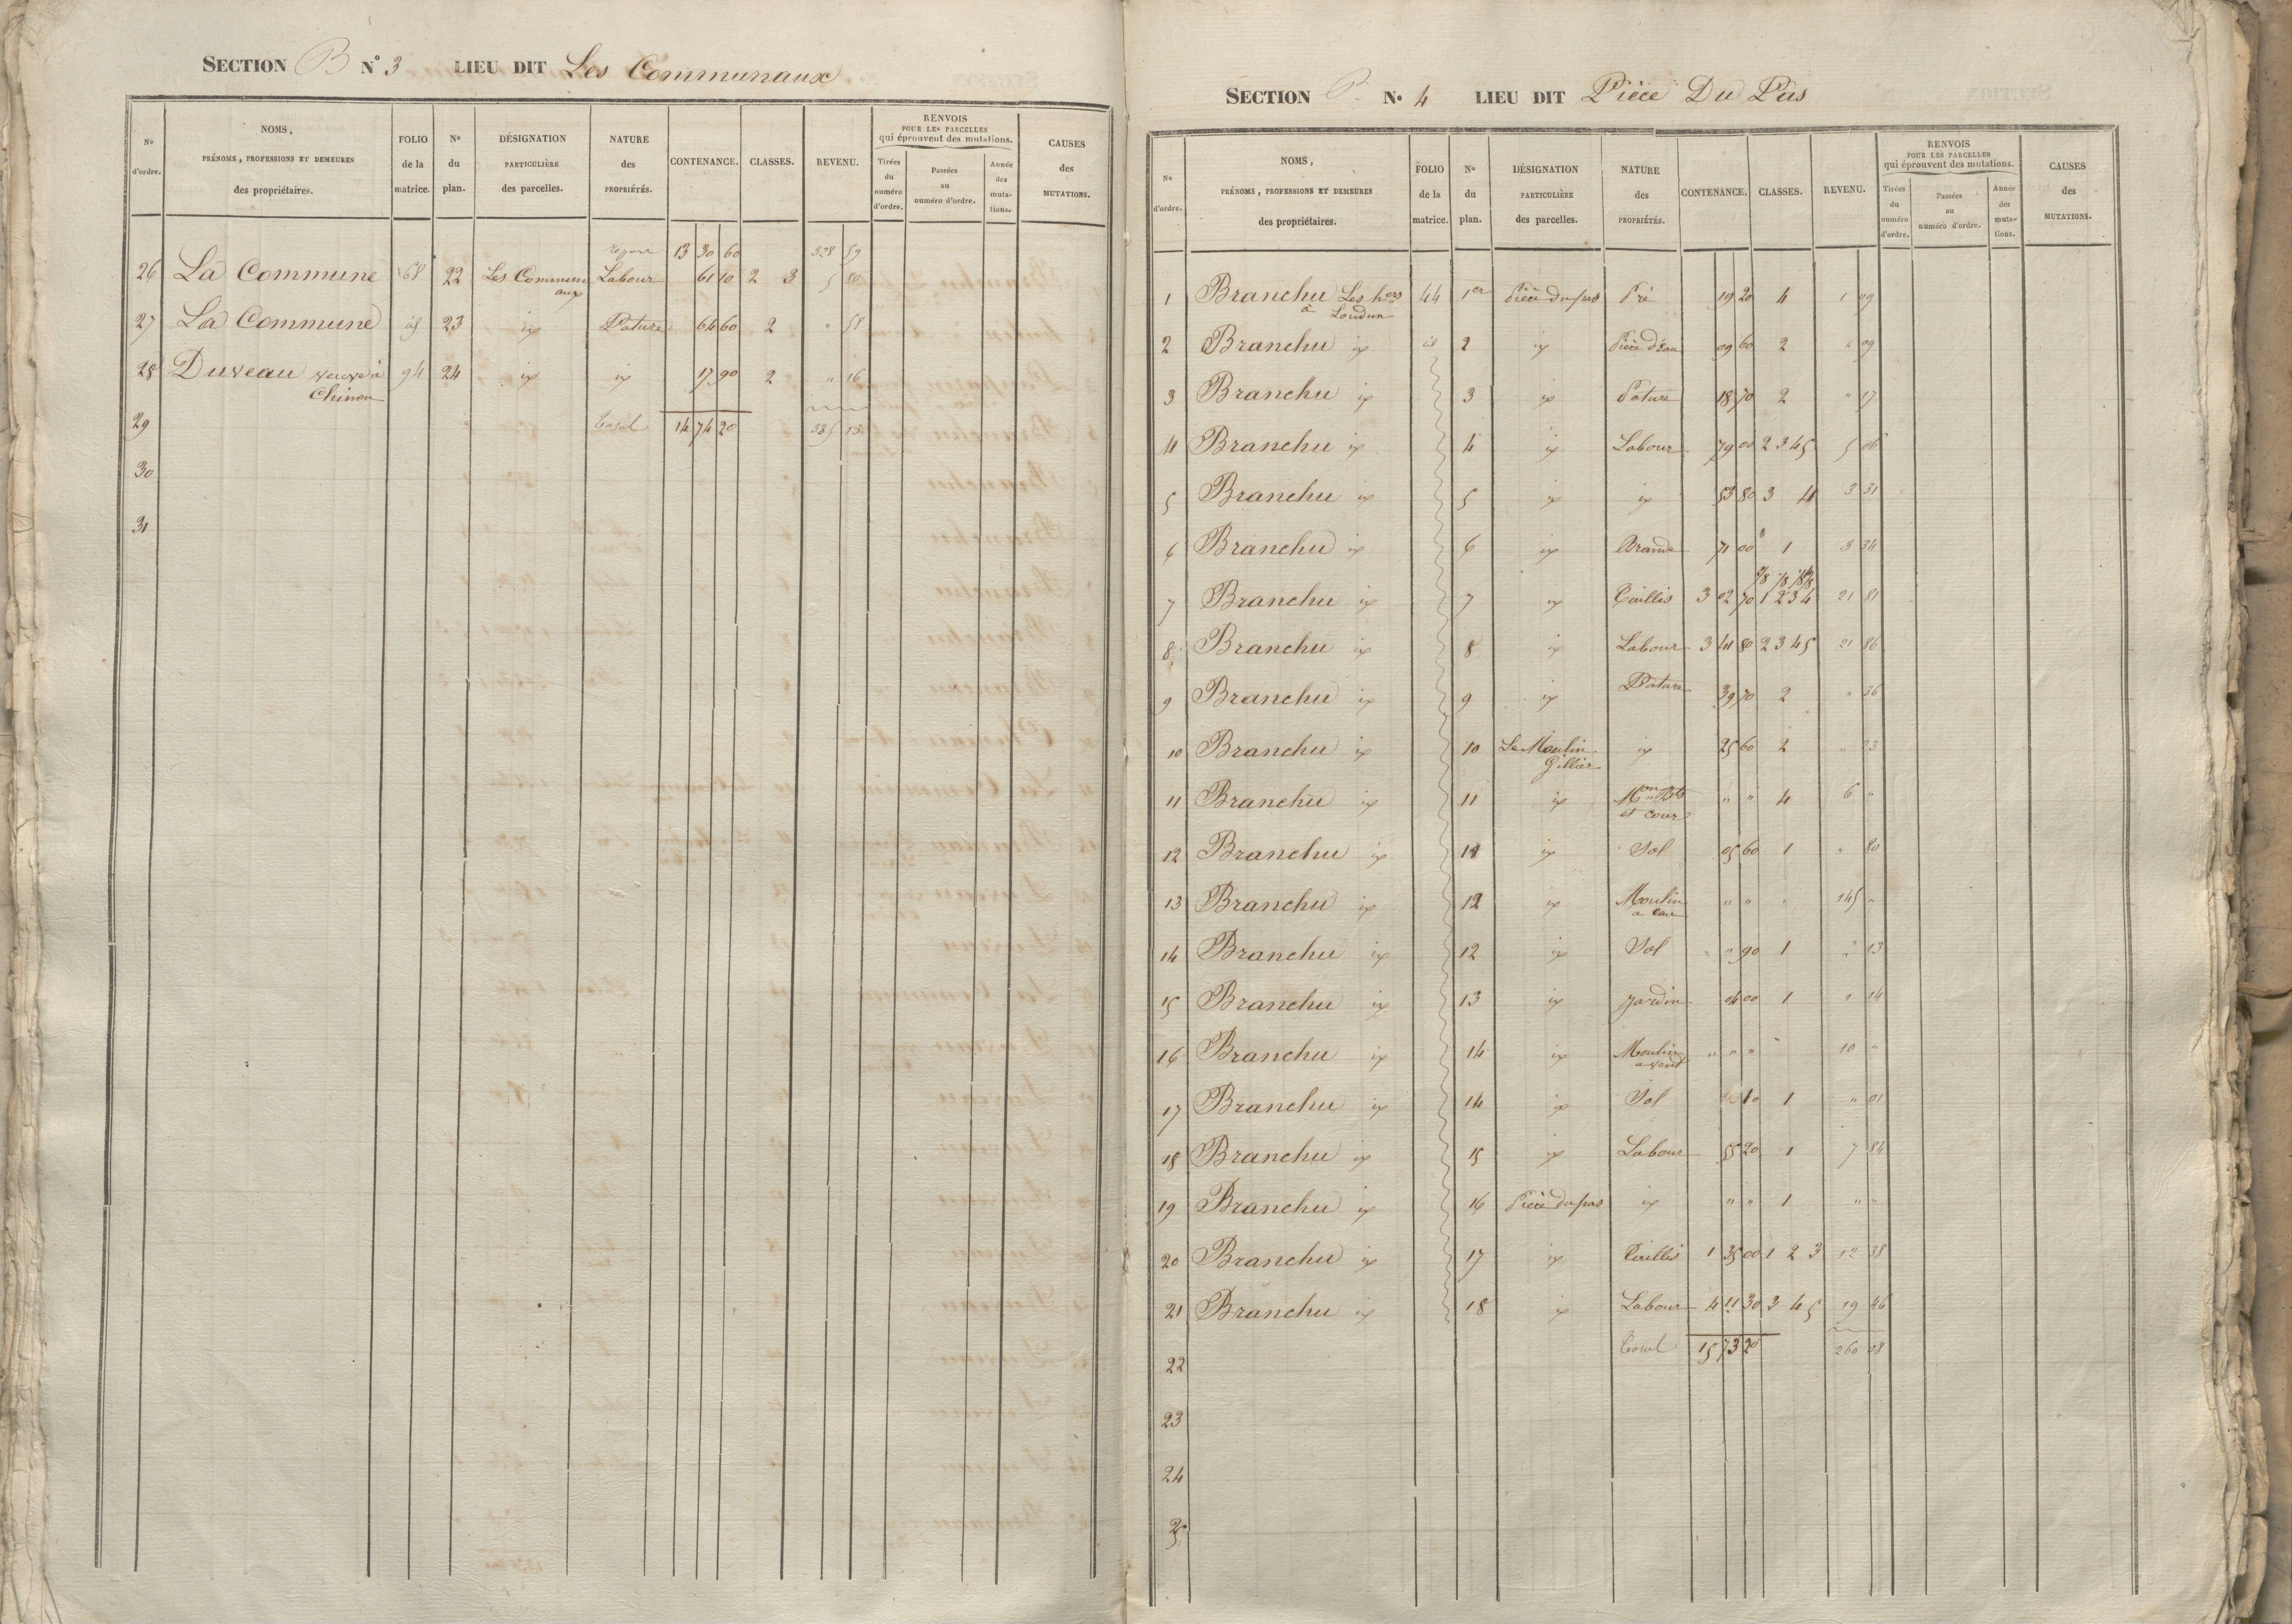 SECTION B N° 3 LIEU DIT Les Communaux
N° d'ordre. NOMS, PRÉNOMS, PROFESSIONS ET DEMEURES des propriétaires. FOLIO de la matrice. N° du plan. DÉSIGNATION PARTICULIÈRE des parcelles. NATURE des PROPRIÉTÉS. CONTENANCE. CLASSES. REVENU. RENVOIS POUR LES PARCELLES qui éprouvent des mutations. Tirées du numéro d'ordre. Passées au numéro d'ordre. Année des mutations. CAUSES des MUTATIONS.
13 30 60 328 59
26 La Commune 68 22 Les Commun Labour 61 10 2 3 5 80
aux
27 La Commune id 23 id Pature 64 60 2 " 58
28 Duveau veuve à 94 24 id id 17 90 2 " 16
Chinon
29 Total 14 74 20 335 13
30
31
SECTION B N° 4 LIEU DIT Pièce Du Pas
N° d'ordre. NOMS, PRÉNOMS, PROFESSIONS ET DEMEURES des propriétaires. FOLIO de la matrice. N° du plan. DÉSIGNATION PARTICULIÈRE des parcelles. NATURE des PROPRIÉTÉS. CONTENANCE. CLASSES. REVENU. RENVOIS POUR LES PARCELLES qui éprouvent des mutations. Tirées du numéro d'ordre. Passées au numéro d'ordre. Année des mutations. CAUSES des MUTATIONS.
1 Branchu Les hers 44 1er Pièce du pas Pré 19 20 4 1 09
à Loudun
2 Branchu id id 2 id Pièce d'eau 09 60 2 " 09
3 Branchu id 3 id Pature 18 70 2 " 17
4 Branchu id 4 id Labour 79 00 2 3 4 5 5 06
5 Branchu id 5 id id 53 80 3 4 3 31
6 Branchu id 6 id Brande 71 00 1 3 34
7 Branchu id 7 id Taillis 3 02 70 1 2 3 4 21 81
8 Branchu id 8 id Labour 3 41 80 2 3 4 5 21 86
9 Branchu id 9 id Pature 39 70 2 " 36
10 Branchu id 10 Le Moulin id 25 60 2 " 23
Gillier
11 Branchu id 11 id Mon Bts " " 4 6 "
et cour
12 Branchu id 11 id Sol 05 60 1 " 80
13 Branchu id 12 id Moulin " " " 145 "
a eau
14 Branchu id 12 id Sol " 90 1 " 13
15 Branchu id 13 id Jardin 04 00 1 " 14
16 Branchu id 14 id Moulin " " " " 10 "
a vent
17 Branchu id 14 id Sol 10 1 " 01
18 Branchu id 15 id Labour 55 20 1 7 84
19 Branchu id 16 Pièce du pas id " " 1 " "
20 Branchu id 17 id Taillis 1 35 00 1 2 3 12 38
21 Branchu id 18 id Labour 4 11 30 3 4 5 19 46
22 Total 15 73 20 260 08
23
24
25